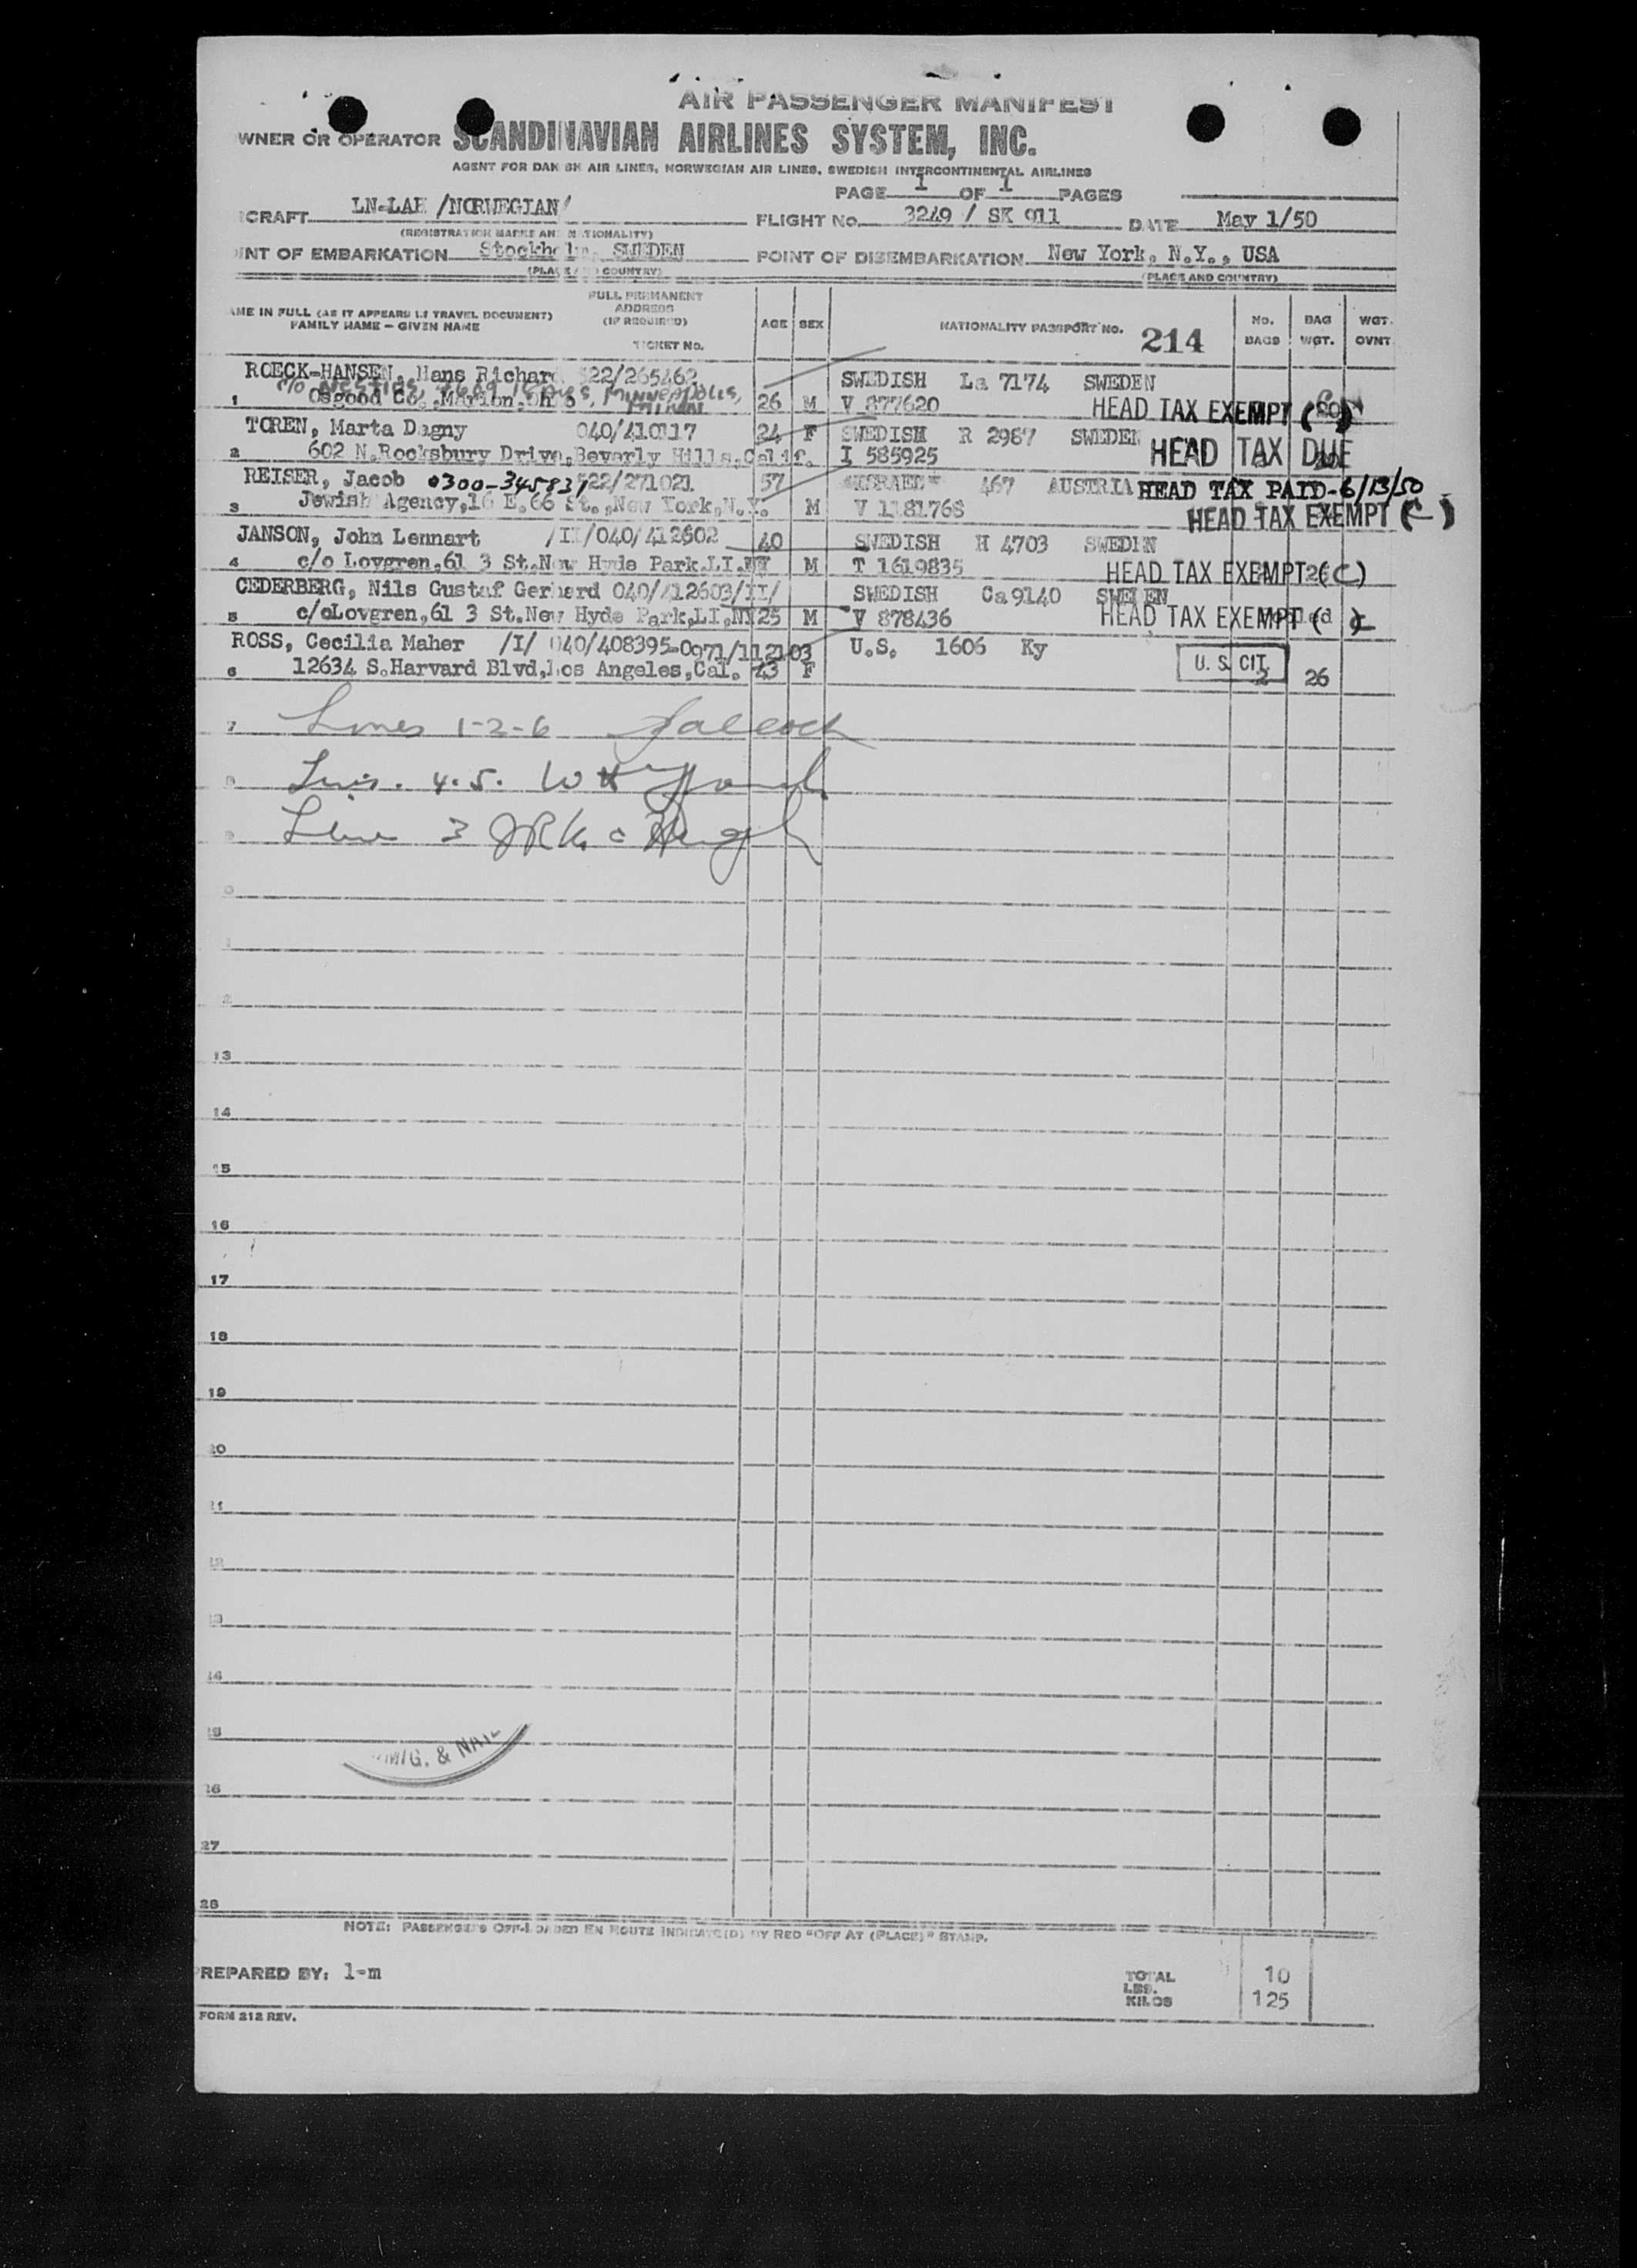 AIR PASSENGER MANIFEST
WNER OR OPERATOR SCANDINAVIAN AIRLINES SYSTEM, INC.
AGENT FOR DAN SH AIR LINES, NORWEGIAN AIR LINES, SWEDISH INTERCONTINENTAL AIRLINES
PAGE 1 OF 1 PAGES
CRAFT LN-LAH /NORWEGIAN/ FLIGHT No. 3249 / SK 911 DATE May 1/50
(REGISTRATION MARKS AND NATIONALITY)
INT OF EMBARKATION Stockholm, SWEDEN POINT OF DISEMBARKATION New York, N.Y., USA
(PLACE AND COUNTRY) (PLACE AND COUNTRY)
AME IN FULL (AS IT APPEARS IN TRAVEL DOCUMENT) FAMILY NAME – GIVEN NAME
FULL PERMANENT ADDRESS (IF REQUIRED) TICKET No. AGE SEX NATIONALITY PASSPORT No. 214 No. BAGS BAG WGT. WGT. OVNT
ROECK-HANSEN, Hans Richard 522/265462 SWEDISH La 7174 SWEDEN
c/o Minneapolis, Minn
1 Osgood Co., Marion, Ohio 26 M V 877620 HEAD TAX EXEMPT
TOREN, Marta Dagny 040/410117 24 F SWEDISH R 2987 SWEDEN
2 602 N.Rocksbury Drive,Beverly Hills,Calif. I 585925 HEAD TAX DUE
REISER, Jacob 0300-345837 522/271021 57 ISRAEL 467 AUSTRIA HEAD TAX PAID-6/13/50
3 Jewish Agency,16 E.66 St.,New York,N.Y. M V 1181768 HEAD TAX EXEMPT (C)
JANSON, John Lennart /II/040/412602 40 SWEDISH H 4703 SWEDEN
4 c/o Lovgren,61 3 St.New Hyde Park.LI.NY M T 1619835 HEAD TAX EXEMPT 26 (C)
CEDERBERG, Nils Gustaf Gerhard 040/412603/II/ SWEDISH Ca9140 SWEDEN
5 c/oLovgren,61 3 St.New Hyde Park,LI,NY 25 M V 878436 HEAD TAX EXEMPT
ROSS, Cecilia Maher /I/ 040/408395-0971/112103 U.S. 1606 Ky
6 12634 S.Harvard Blvd,Los Angeles,Cal. 43 F U. S. CIT. 2 26
7 Lines 1-2-6
8 Lins. 4.5.
9 Line 3
0
1
2
13
14
15
16
17
18
19
20
21
22
23
24
25
IMMIG. & NAT
26
27
28
NOTE: PASSENGERS OFF-LOADED EN ROUTE INDICATE(D) BY RED "OFF AT (PLACE)" STAMP.
PREPARED BY: l-m TOTAL 10
LBS.
KILOS 125
FORM 212 REV.